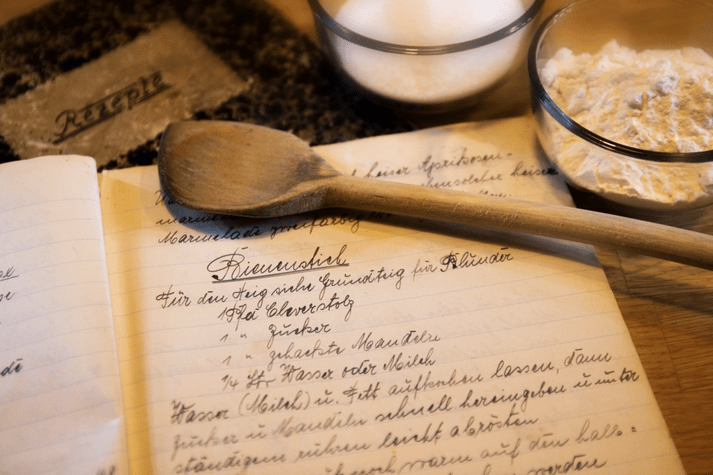 Rezepte
heiser Aprikosen-
Marmelade zweifarbig
Bienenstich
Für den Teig siehe Grundteig für Plunder
1 Pfd Cleverstolz
1 " Zucker
1 " gehackte Mandeln
1/4 Ltr Wasser oder Milch
Wasser (Milch) u. Fett aufkochen lassen, dann
Zucker u Mandeln schnell hereingeben u unter
ständigem rühren leicht abrösten
noch warm auf den halb=
werden